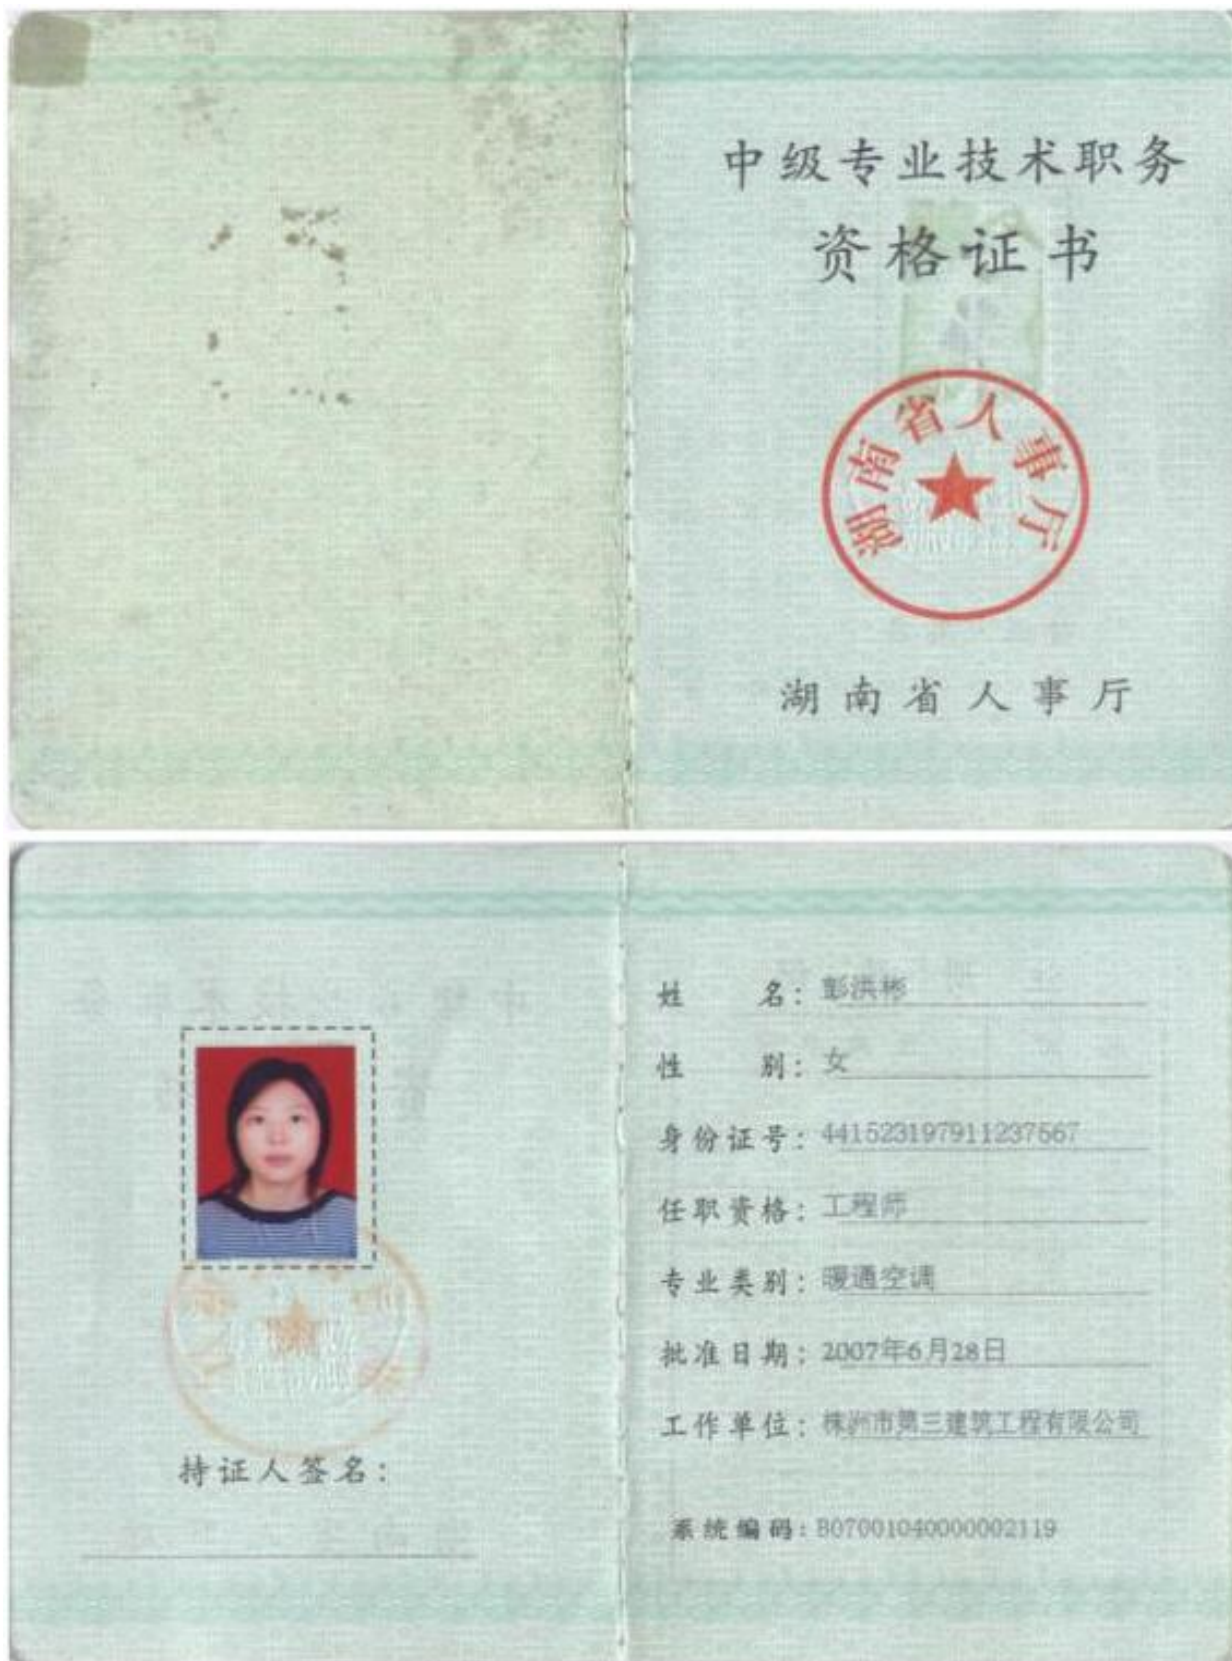 中级专业技术职务
资格证书
湖南省人事厅
湖南省人事厅
姓名：彭洪彬
性别：女
身份证号：441523197911237567
任职资格：工程师
专业类别：暖通空调
批准日期：2007年6月28日
工作单位：株洲市第三建筑工程有限公司
持证人签名：
系统编码：B07001040000002119